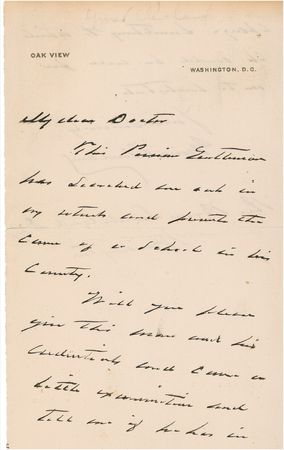 OAK VIEW
WASHINGTON, D.C.
My dear Doctor
This Persian Gentleman
has searched me out in
my retreat and presents the
Cause of a School in his
Country.
Will you please
give this man and his
credentials and cause a
little examination and
tell me if he has in